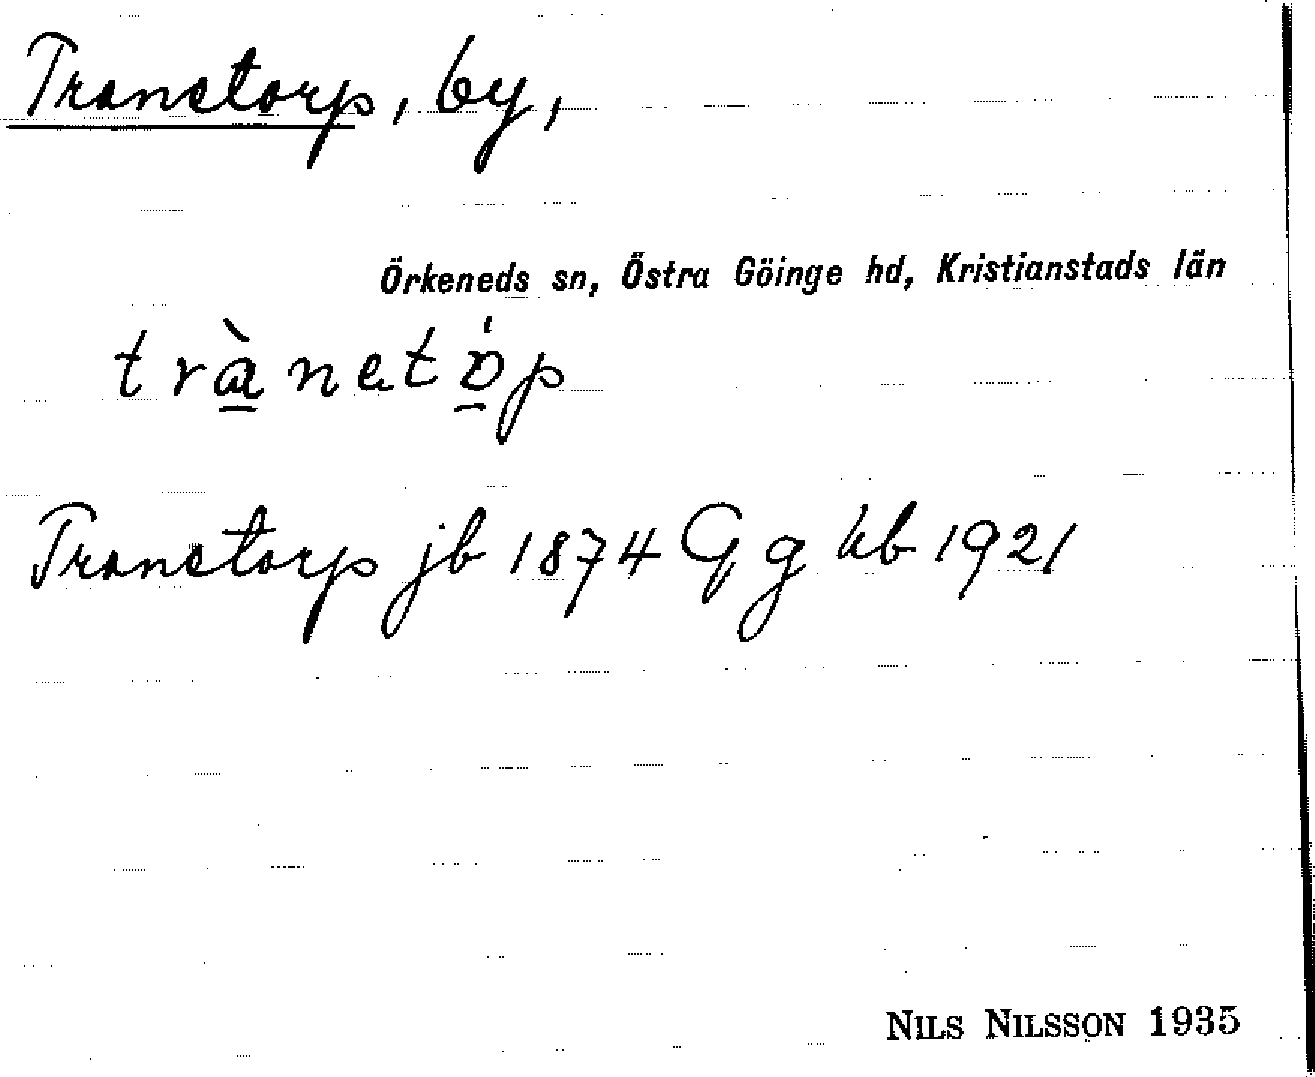 Tranetorp, by,
Örkeneds sn, Östra Göinge hd, Kristianstads län
trànetòp
Tranetorp jb 1874 Gg kb 1921
NILS NILSSON 1935